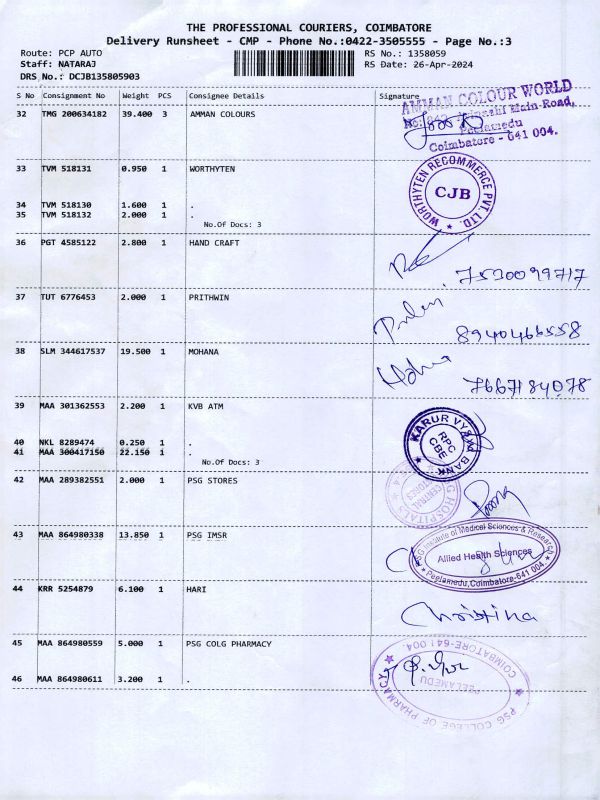 THE PROFESSIONAL COURIERS, COIMBATORE
Delivery Runsheet - CMP - Phone No.:0422-3505555 - Page No.:3
Route: PCP AUTO RS No.: 1358059
Staff: NATARAJ RS Date: 26-Apr-2024
DRS No.: DCJB135805903
S No Consignment No Weight PCS Consignee Details Signature
32 TMG 200634182 39.400 3 AMMAN COLOURS
AMMAN COLOUR WORLD
Main Road,
Peelamedu
Coimbatore - 641 004.
33 TVM 518131 0.950 1 WORTHYTEN
WORTHYTEN RECOMMERCE PVT. LTD.
CJB
34 TVM 518130 1.600 1 .
35 TVM 518132 2.000 1 .
No.Of Docs: 3
36 PGT 4585122 2.800 1 HAND CRAFT
7530099717
37 TUT 6776453 2.000 1 PRITHWIN
8940466558
38 SLM 344617537 19.500 1 MOHANA
7667184078
39 MAA 301362553 2.200 1 KVB ATM
KARUR VYSYA BANK
RPC
CBE
40 NKL 8289474 0.250 1 .
41 MAA 300417150 22.150 1 .
No.Of Docs: 3
42 MAA 289382551 2.000 1 PSG STORES
HOSPITALS
CENTRAL
STORES
43 MAA 864980338 13.850 1 PSG IMSR
PSG Institute of Medical Sciences & Research
Allied Health Sciences
Peelamedu,Coimbatore-641 004
44 KRR 5254879 6.100 1 HARI
Christina
45 MAA 864980559 5.000 1 PSG COLG PHARMACY
46 MAA 864980611 3.200 1 .
PSG COLLEGE OF PHARMACY
PEELAMEDU
COIMBATORE-641 004